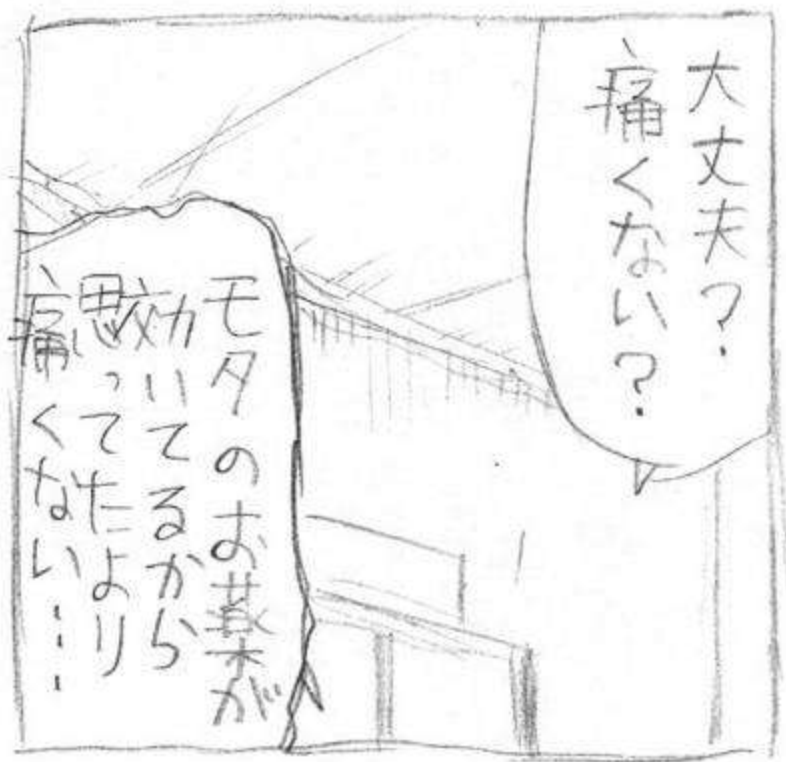 大丈夫?
痛くない?
モタのお薬が
効いてるから
思ってたより
痛くない…